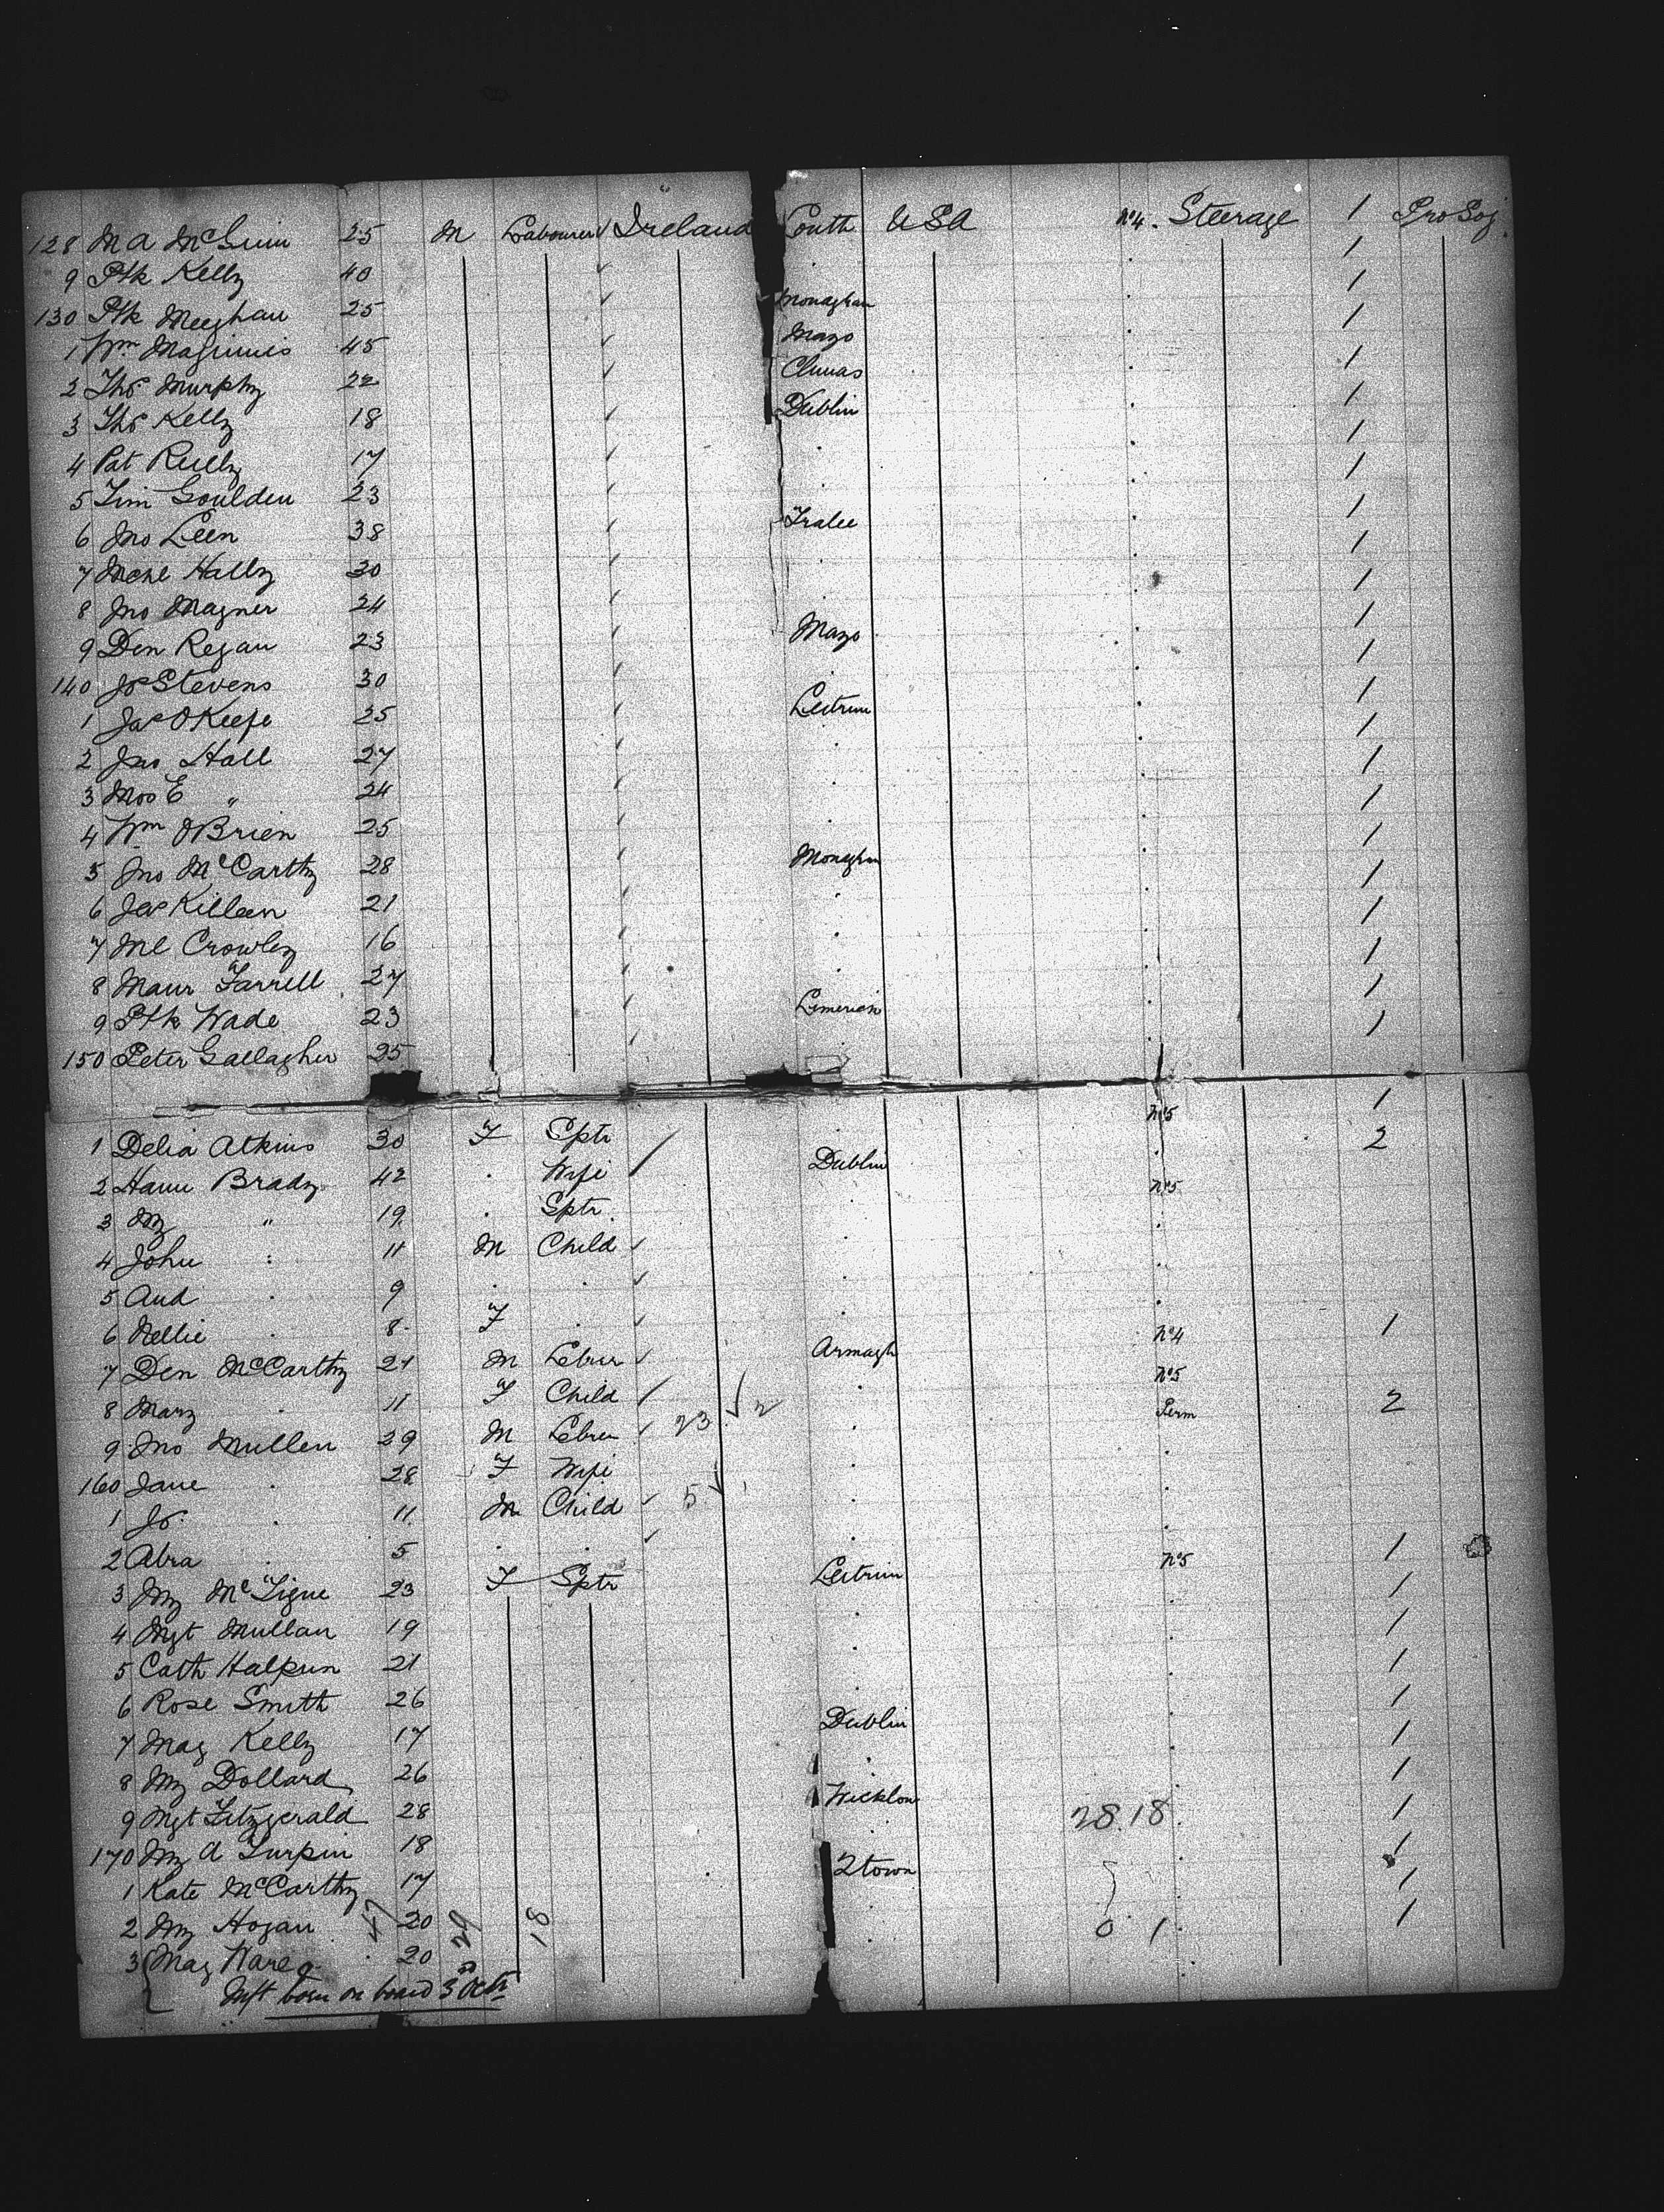 128 M A McGuin 25 M Labourer Ireland Louth USA No 4 . Steerage 1 Pro Soj
9 Ptk Kelly 40 . . 1
130 Ptk Meeghan 25 Monaghan . 1
1 Wm Maginnis 45 Mayo . 1
2 Thos Murphy 22 . 1
3 Thos Kelly 18 Dublin . 1
4 Pat Reilly 17 . . 1
5 Tim Goulden 23 . . 1
6 Jno Leen 38 Tralee . 1
7 Mchl Hally 30 . . 1
8 Jno Magner 24 . . 1
9 Den Regan 23 Mayo . 1
140 Js Stevens 30 . 1
1 Jas O'Keefe 25 Leitrim . 1
2 Jno Hall 27 . . 1
3 Mos E " 24 . . 1
4 Wm O'Brien 25 . . 1
5 Jno McCarthy 28 Monaghan . 1
6 Jas Killeen 21 . . 1
7 Ml Crowley 16 . . 1
8 Maur Farrell 27 . . 1
9 Ptk Wade 23 Limerick . 1
150 Peter Gallagher 25 . . 1
1 Delia Atkins 30 F Sptr No 5 1
2 Hann Brady 42 . Wife Dublin . 2
3 My " 19 . Sptr . No 5
4 John : 11 M Child . .
5 And . 9 . . . .
6 Nellie . 8 F . . .
7 Den McCarthy 21 M Lbrer Armagh No 4 1
8 Mary . 11 F Child . No 5
9 Jno Mullen 29 M Lbrer 23 2 . Perm 2
160 Jane . 28 F Wife . .
1 Js . 11 M Child 5 1 . .
2 Abra . 5 . . . .
3 My McTigue 23 F Sptr Leitrim No 5 1
4 Mgt Mullan 19 . . 1
5 Cath Halpun 21 . . 1
6 Rose Smith 26 . . 1
7 Mag Kelly 17 Dublin . 1
8 My Dollard 26 . . 1
9 Mgt Fitzgerald 28 Wicklow 28.18 . 1
170 My A Turpin 18 . . 1
1 Kate McCarthy 17 Qtown . 1
2 My Hogan 47 20 29 18 . 0 1 . 1
3 Mag Ware 20 . .
Inft born on board 3rd Octr